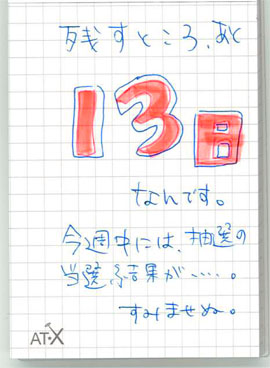 残すところ、あと
13日
なんです。
今週中には、抽選の
当選結果が……。
すみませぬ。
AT-X